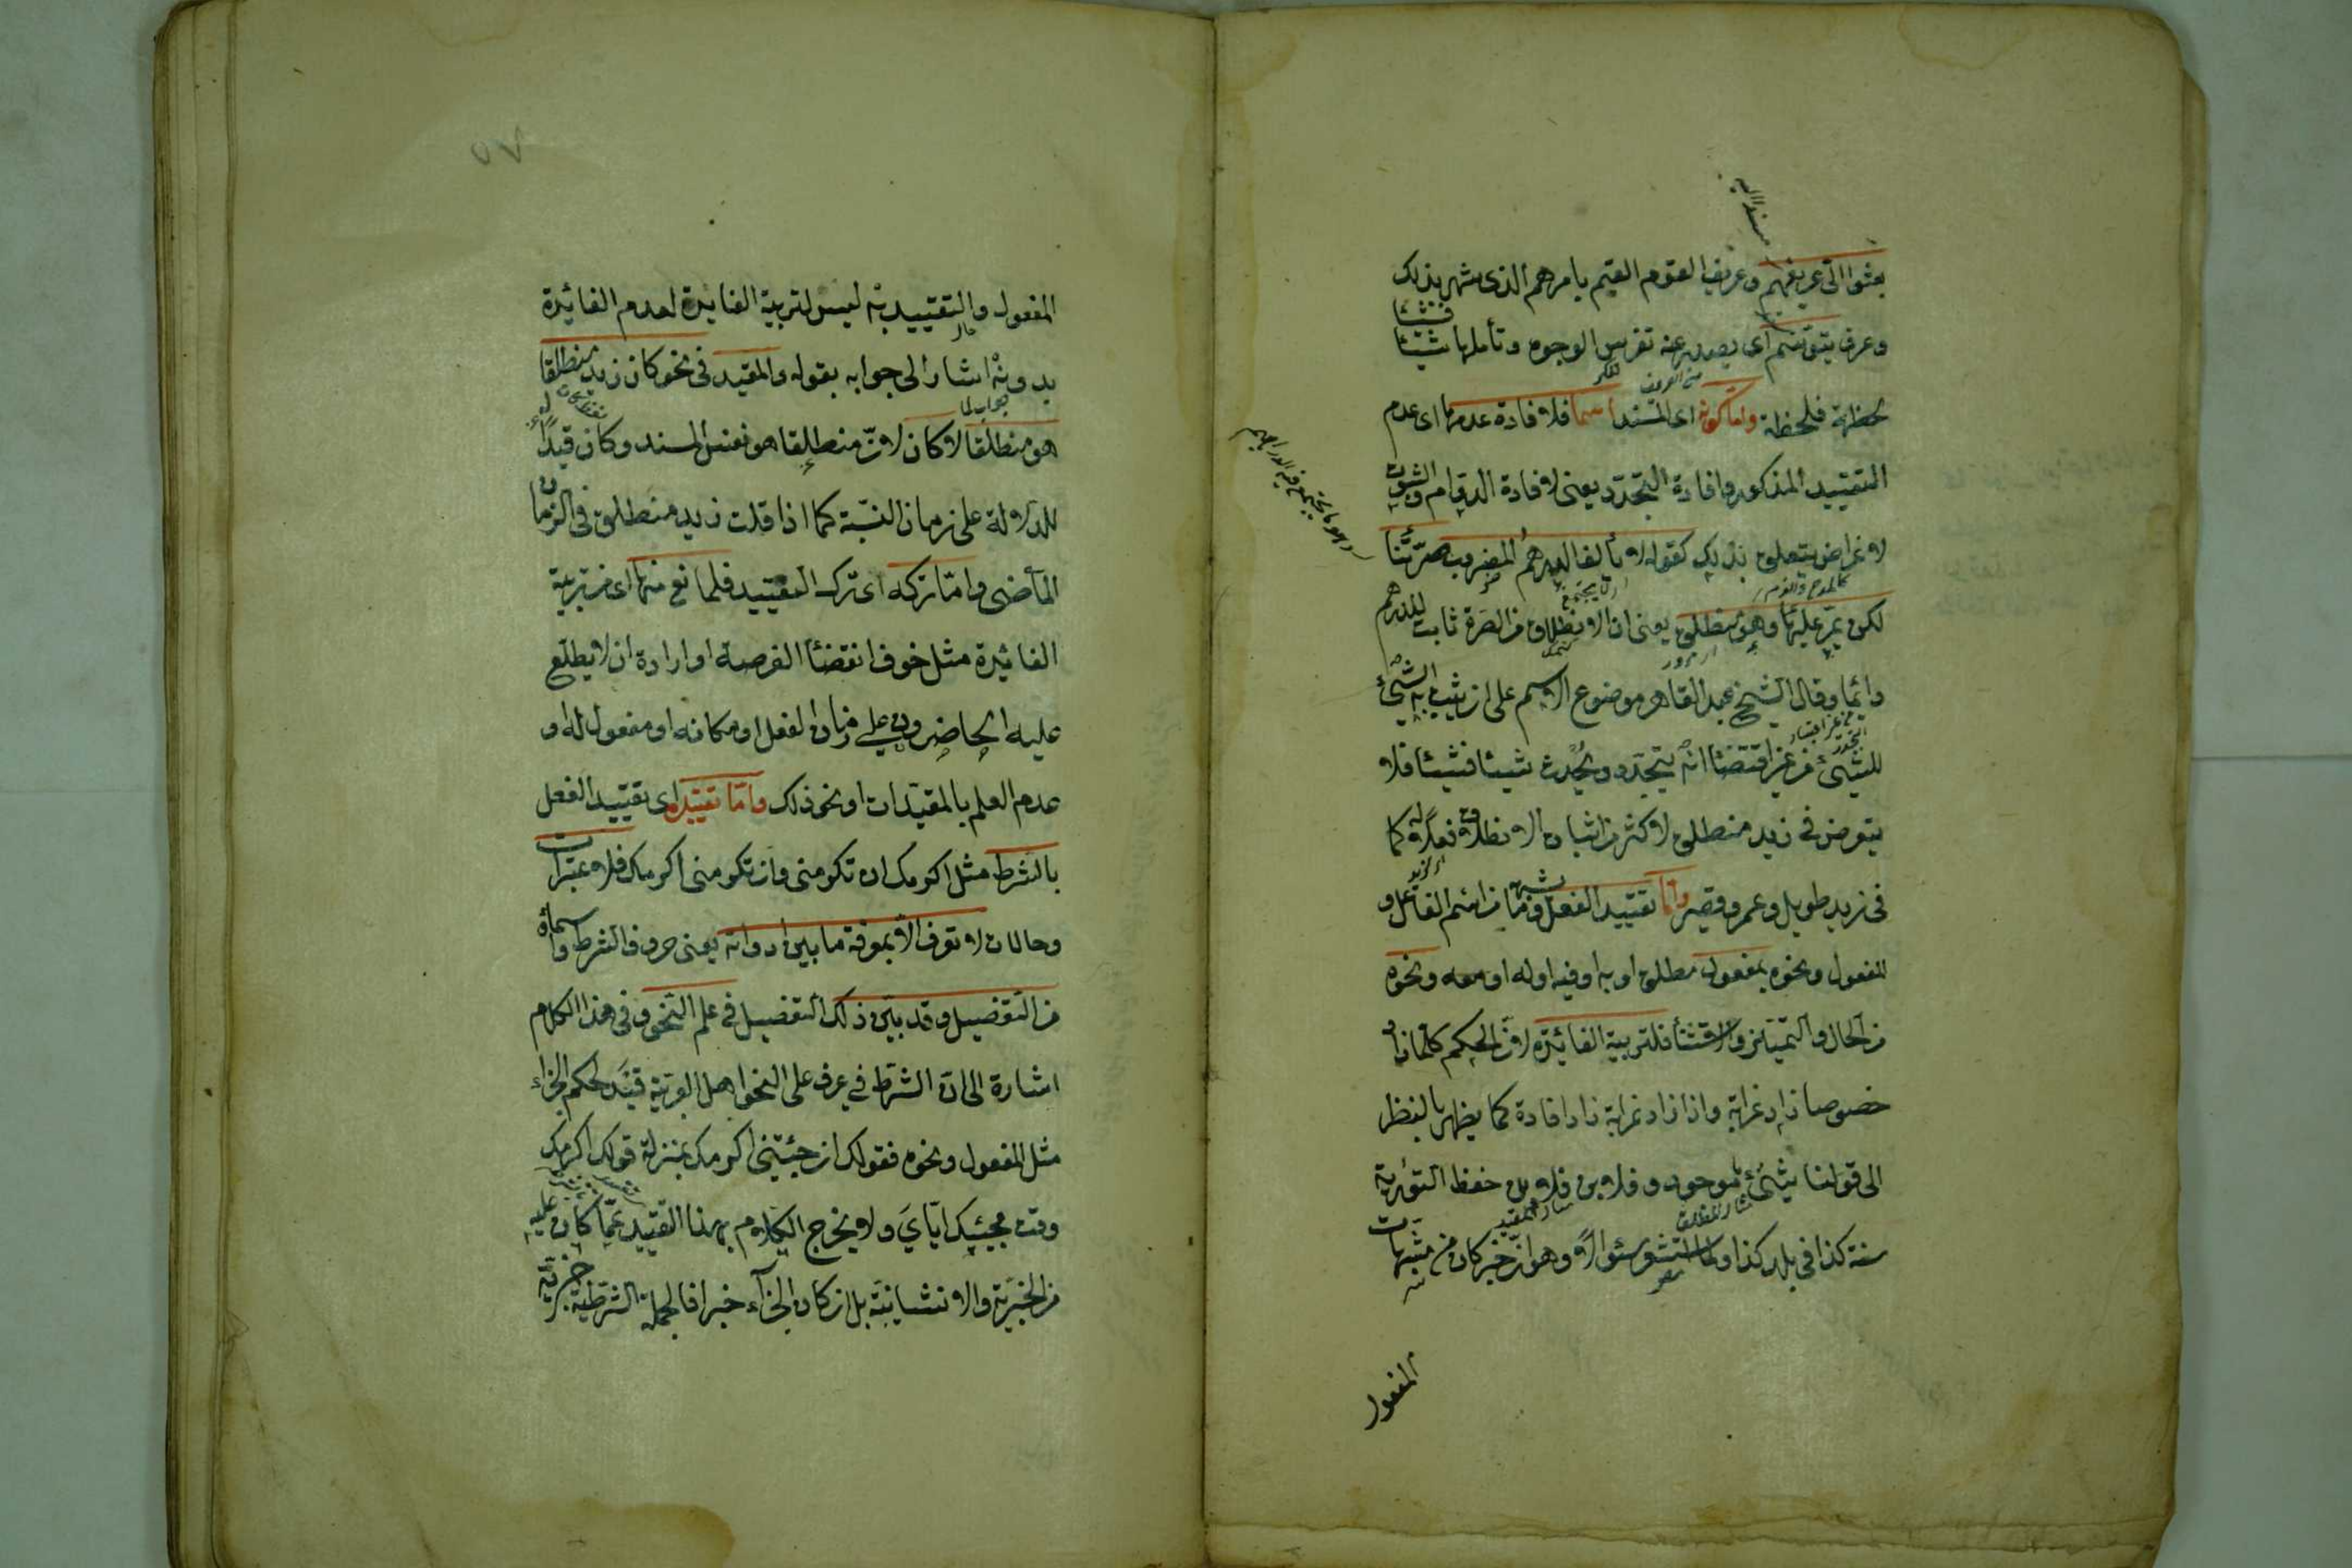 بعثوا الىّ عريفهم وعريف القوم القيم بامرهم الذى شهر بذلك
وعرف يتوسم اى يصدر عنه تفرس الوجوه وتأملها شيئا فشيئا
لحظة فلحظة واما كونه اى المسند اسما فلافادة عدمهما اى عدم
التقييد المذكور وافادة التجدد يعنى لافادة الدوام والثبوت
لاغراض يتعلق بذلك كقوله لا يألف الدرهم المضروب صرتنا
لكن يمر عليها وهو منطلق يعنى ان الانطلاق من الصرة ثابت للدرهم
دائما وقال الشيخ عبد القاهر موضوع الاسم على ان يثبت به الشىء
للشىء من غير اقتضاء انه يتجدد ويحدث شيئا فشيئا فلا
يتعرض فى زيد منطلق لاكثر من اثبات الانطلاق فعلا له كما
فى زيد طويل وعمرو قصير واما تقييد الفعل وما يشبهه من اسم الفاعل و
المفعول ونحوه بمفعول مطلق او به او فيه او له او معه ونحوه
من الحال والتمييز والاستثناء فلتربية الفائدة لان الحكم كلما زاد
خصوصا زاد غرابة واذا زاد غرابة زاد افادة كما يظهر بالنظر
الى قولنا شىء ما موجود وفلان بن فلان حفظ التورية
سنة كذا فى بلد كذا ولما استشعر سئوالا وهو ان خبر كان من مشبهات
المفعول
المفعول والتقييد به ليس لتربية الفايدة لعدم الفائدة
بدونه اشار الى جوابه بقوله والمقيد فى نحو كان زيد منطلقا
هو منطلقا لا كان لان منطلقا هو نفس المسند وكان قيد له
للدلالة على زمان النسبة كما اذا قلت زيد منطلق فى الزمان
الماضى واما تركه اى ترك التقييد فلمانع منها اى من تربية
الفائدة مثل خوف انقضاء الفرصة او ارادة ان لا يطلع
عليه الحاضرون على زمان الفعل او مكانه او مفعوله او
عدم العلم بالمقيدات او نحو ذلك واما تقييده اى تقييد الفعل
بالشرط مثل اكرمك ان تكرمنى وان تكرمنى اكرمك فلاعتبارات
وحالات لا تعرف الا بمعرفة ما بين ادواته يعنى حروف الشرط واسمائه
من التفصيل وقد بيّن ذلك التفصيل فى علم النحو وفى هذا الكلام
اشارة الى ان الشرط فى عرف على النحو اهل العربية قيد لحكم الجزاء
مثل المفعول ونحوه فقولك ان جئتنى اكرمك بمنزلة قولك اكرمك
وقت مجيئك اياى ولا يخرج الكلام بهذا التقييد عما كان عليه
من الخبرية والانشائية بل ان كان الجزاء خبرا فالجملة الشرطية خبرية